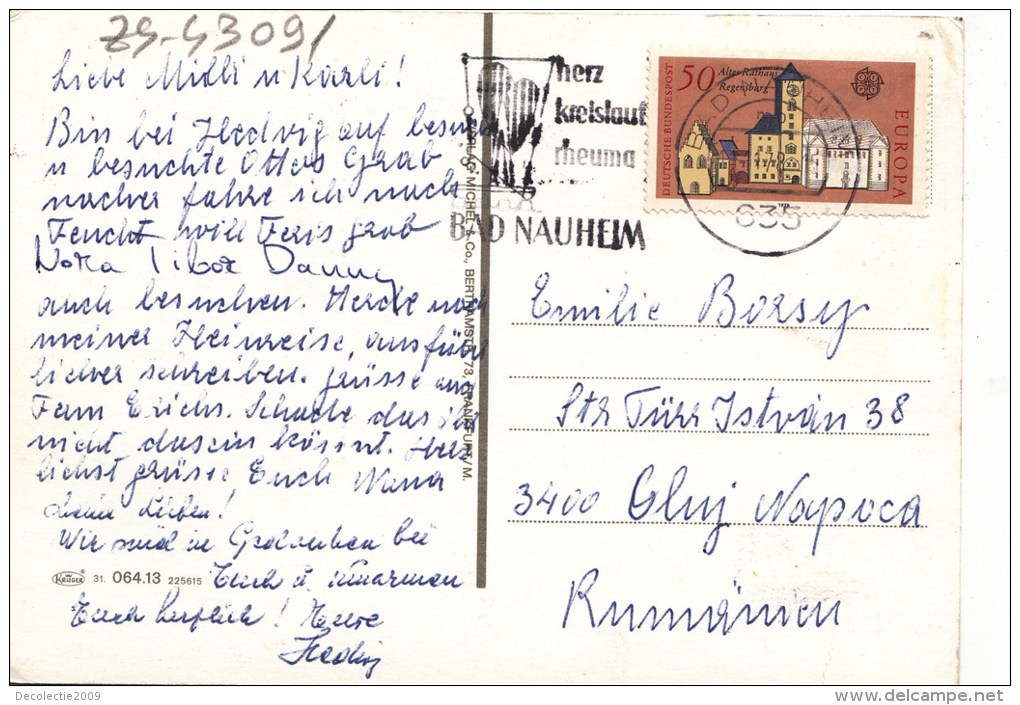 ZS-43091
Liebe Midli u Karli!
Bin bei Hedvig auf besuch
u besuchte Ottos Grab
nacher fahre ich nach
Feucht will Feris grab
Nora Tibor Danny
auch besuchen. Werde nach
meiner Heimreise, ausführ
licher schreiben. Grüsse an
Fam Erichs. Schade das ihr
nicht dasein könnt. Herz
lichst grüsse Euch Nana
meine Lieben!
Wir sind in Gedanken bei
Euch u. umarmen
Euch herzlich! Eure
Hedvig
KRÜGER 31. 064.13 225615
VERLAG MICHEL & Co., BERTRAMSTR. 73, FRANKFURT/M.
herz
kreislauf
rheuma
BAD NAUHEIM
DEUTSCHE BUNDESPOST
50 Altes Rathaus
Regensburg
EUROPA
635
Emilie Borsy
Str Türr István 38
3400 Cluj Napoca
Rumänien
Decolectie2009
www.delcampe.net